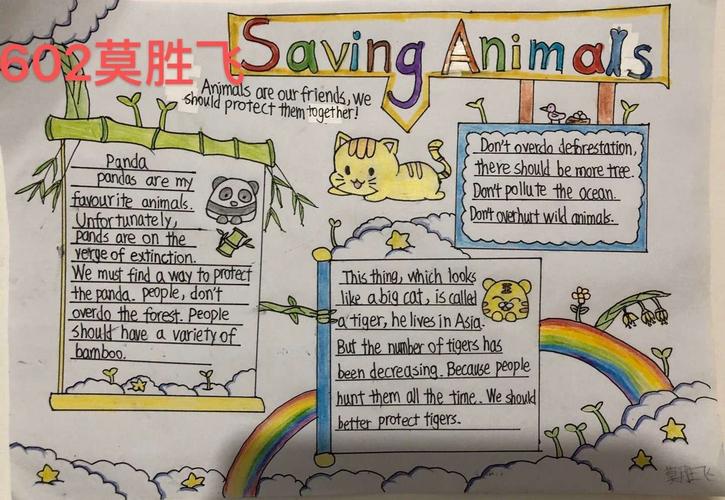 602莫胜飞
Saving Animals
Animals are our friends, we
should protect them together!
Panda
pandas are my
favourite animals.
Unfortunately,
pands are on the
verge of extinction.
We must find a way to protect
the panda. people, don't
overdo the forest. People
should have a variety of
bamboo.
Don't overdo deforestation,
there should be more tree.
Don't pollute the ocean.
Don't overhurt wild animals.
This thing, which looks
like a big cat, is called
a tiger, he lives in Asia.
But the number of tigers has
been decreasing. Because people
hunt them all the time. We should
better protect tigers.
莫胜飞